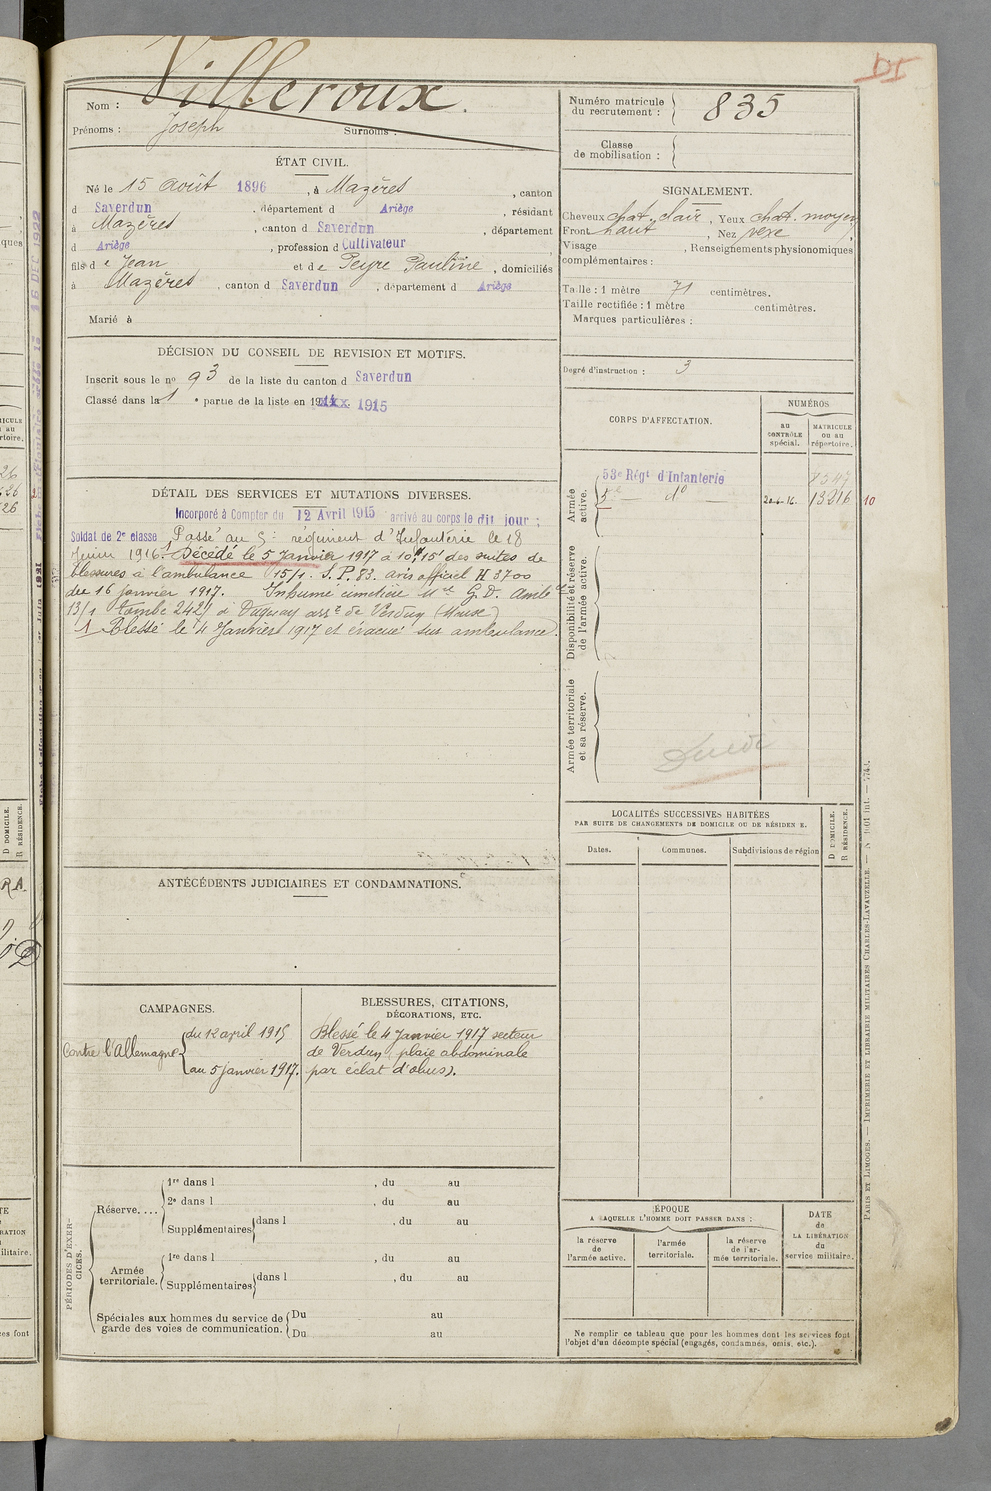 Villeroux.
Nom :
Prénoms : Joseph Surnoms :
ÉTAT CIVIL.
Né le 15 août 1896, à Mazères, canton
d Saverdun, département d Ariège, résidant
à Mazères, canton d Saverdun, département
d Ariège, profession d Cultivateur
fils d e Jean et de Peyre Pauline, domiciliés
à Mazères, canton d Saverdun, département d Ariège
Marié à
DÉCISION DU CONSEIL DE REVISION ET MOTIFS.
Inscrit sous le no 93 de la liste du canton d Saverdun
Classé dans la 1 e partie de la liste en 1915
DÉTAIL DES SERVICES ET MUTATIONS DIVERSES.
Incorporé à Compter du 12 Avril 1915 arrivé au corps le dit jour ;
Soldat de 2e classe Passé au 5e régiment d'Infanterie le 18
Juin 1916. Décédé le 5 Janvier 1917 à 10h15' des suites de
blessures à l'ambulance 15/1. S.P. 83. avis officiel H 3700
du 16 janvier 1917. Inhumé cimetière G.D. Amb
13/1 tombe 242 à Dugny arrt de Verdun (Meuse)
1 Blessé le 4 Janvier 1917 et évacué sur ambulance.
ANTÉCÉDENTS JUDICIAIRES ET CONDAMNATIONS.
CAMPAGNES.
Contre l'Allemagne
du 12 april 1915
au 5 janvier 1917.
BLESSURES, CITATIONS,
DÉCORATIONS, ETC.
Blessé le 4 Janvier 1917 secteur
de Verdun (plaie abdominale
par éclat d'obus).
PÉRIODES D'EXER-
CICES.
Réserve....
1re dans l , du au
2e dans l , du au
Supplémentaires dans l , du au
Armée
territoriale.
1re dans l , du au
Supplémentaires dans l , du au
Spéciales aux hommes du service de
garde des voies de communication.
Du au
Du au
DI
Numéro matricule
du recrutement : 835
Classe
de mobilisation :
SIGNALEMENT.
Cheveux chat. clair, Yeux chat. moyen
Front haut, Nez vexe
Visage , Renseignements physionomiques
complémentaires :
Taille : 1 mètre 71 centimètres.
Taille rectifiée : 1 mètre centimètres.
Marques particulières :
Degré d'instruction : 3
CORPS D'AFFECTATION.
NUMÉROS
au
CONTRÔLE
spécial.
MATRICULE
ou au
répertoire.
Armée
active.
53e Régt d'Infanterie 7547
5e do 13216 10
Disponibilité et réserve
de l'armée active.
Armée territoriale
et sa réserve.
LOCALITÉS SUCCESSIVES HABITÉES
PAR SUITE DE CHANGEMENTS DE DOMICILE OU DE RÉSIDEN E.
Dates.
Communes.
Subdivisions de région
D DOMICILE.
R RÉSIDENCE.
ÉPOQUE
A LAQUELLE L'HOMME DOIT PASSER DANS :
la réserve
de
l'armée active.
l'armée
territoriale.
la réserve
de l'ar-
mée territoriale.
DATE
de
LA LIBÉRATION
du
service militaire.
Ne remplir ce tableau que pour les hommes dont les services font
l'objet d'un décompte spécial (engagés, condamnés, omis, etc.).
PARIS ET LIMOGES. — IMPRIMERIE ET LIBRAIRIE MILITAIRES CHARLES-LAVAUZELLE.